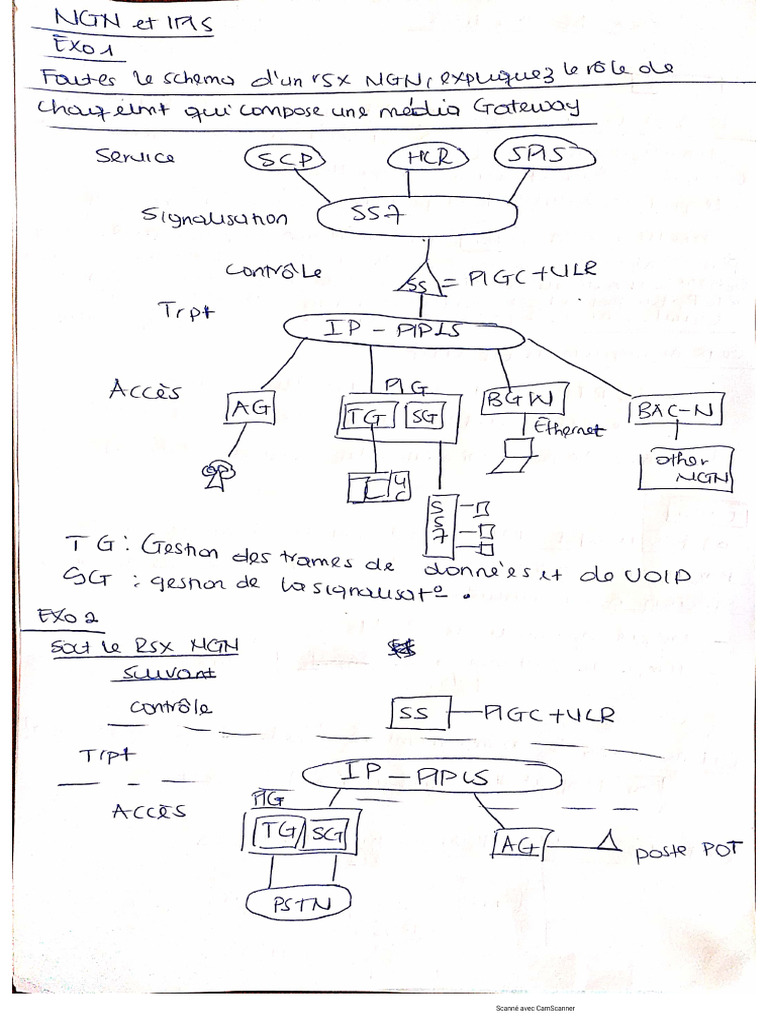 NGN et IMS
EXO 1
Faites le schema d'un rsx NGN, expliquez le rôle de
chaq elmt qui compose une média Gateway
Service SCP HLR SMS
Signalisation SS7
Contrôle SS = MGC + VLR
Trpt
IP - MPLS
Accès MG
AG TG SG BGW BAC-N
Ethernet
other
NGN
SS7
TG : Gestion des trames de données et de VOIP
SG : gestion de la signalisat°.
EXO 2
Soit le RSX NGN
suivant
Contrôle SS MGC + VLR
Trpt
IP - MPLS
MG
Accès
TG SG AG poste POT
PSTN
Scanné avec CamScanner